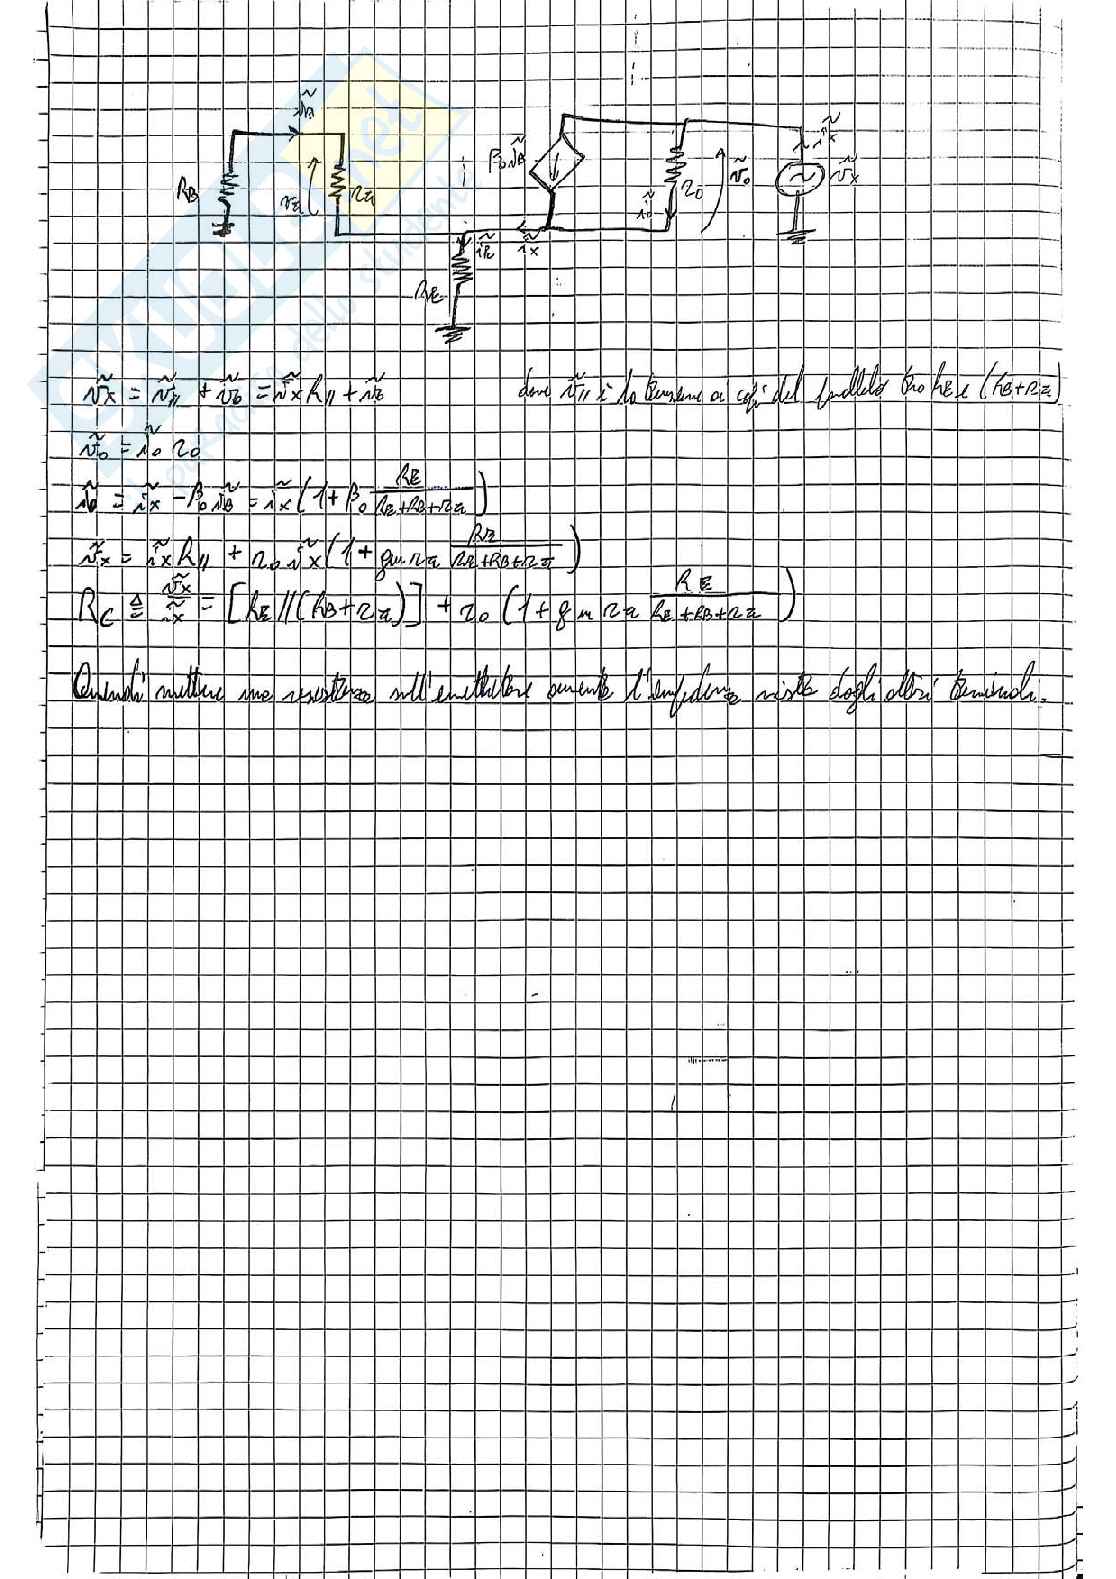 ĩB
RB
vπ
rπ
β0 ĩB
ĩo
r0
ṽo
ĩx
ṽx
ĩE
ĩx
RE
ṽx = ṽ// + ṽo = ĩx R// + ṽo
dove ṽ// è la tensione ai capi del parallelo tra RE e (RB+rπ)
ṽo = ĩo r0
ĩo = ĩx - β0 ĩB = ĩx (1 + β0 RE / (RE+RB+rπ))
ṽx = ĩx R// + r0 ĩx (1 + gm rπ RE / (RE+RB+rπ))
RC ≜ ṽx / ĩx = [RE // (RB+rπ)] + r0 (1 + gm rπ RE / (RE+RB+rπ))
Quindi mettere una resistenza sull'emettitore aumenta l'impedenza vista dagli altri terminali.
SKUOLA.net
dello studente